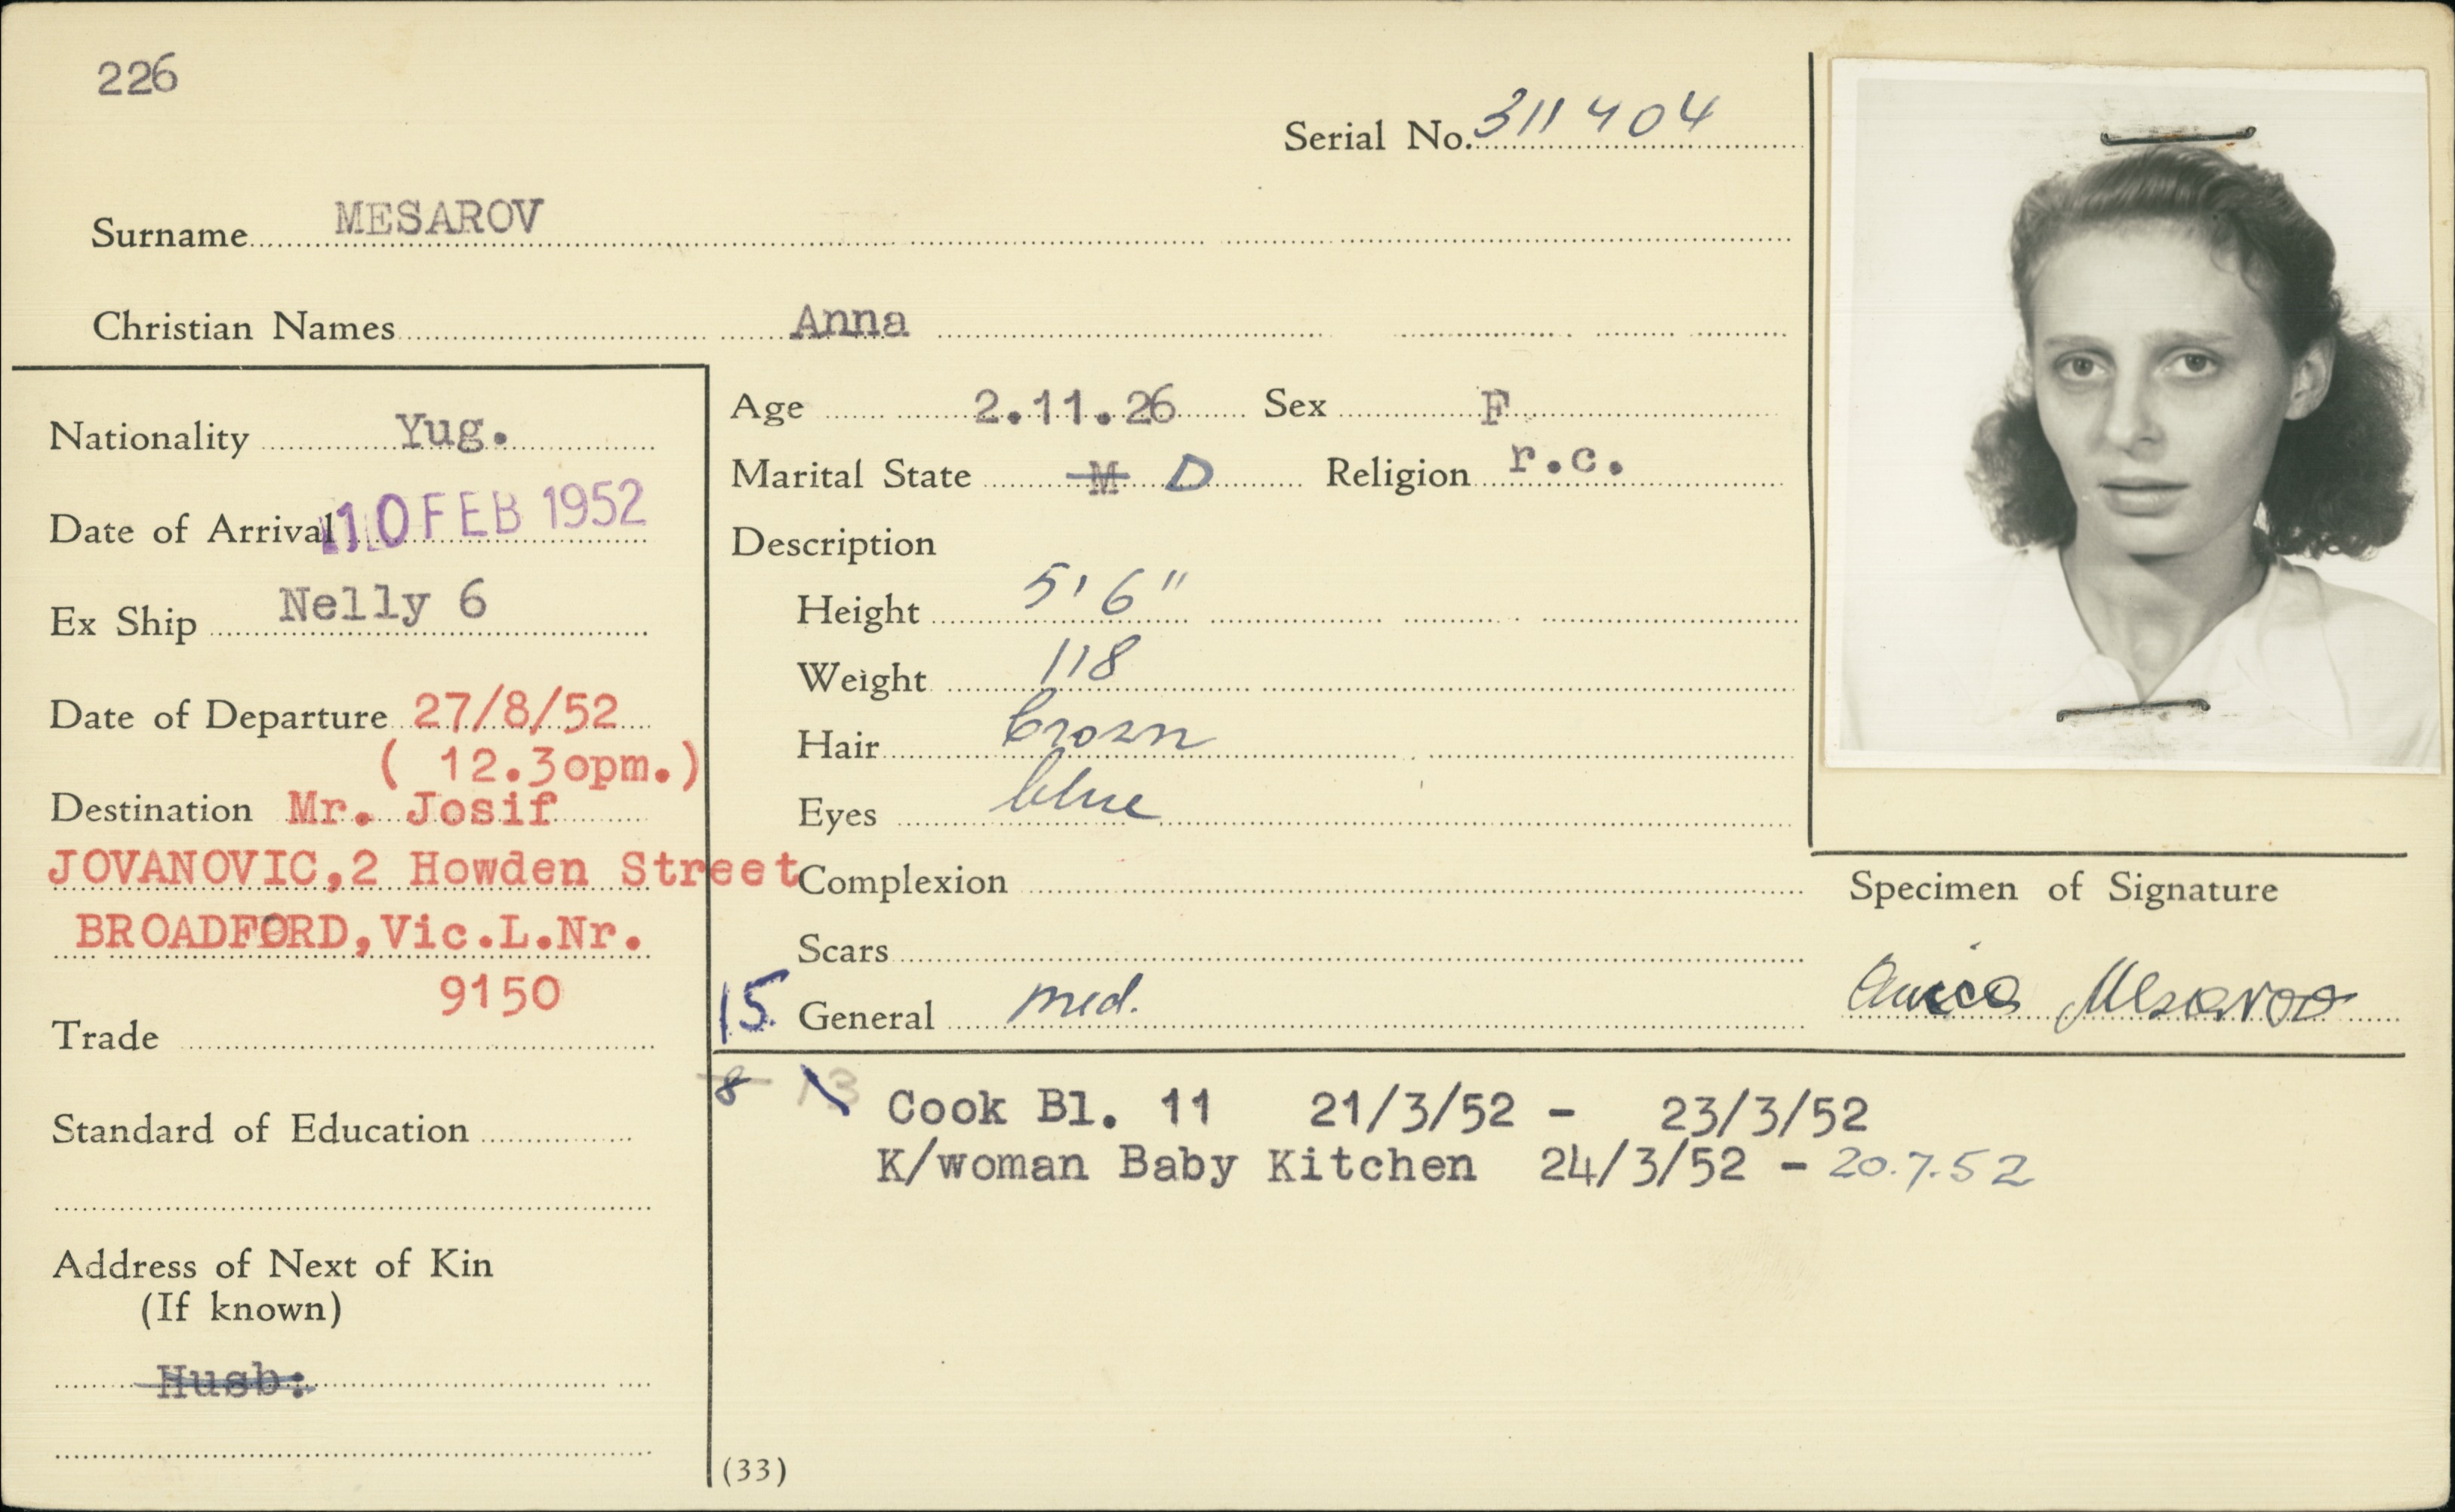 226
Serial No. 311404
Surname MESAROV
Christian Names Anna
Nationality Yug.
Date of Arrival 10 FEB 1952
Ex Ship Nelly 6
Date of Departure 27/8/52
( 12.3opm.)
Destination Mr. Josif
JOVANOVIC,2 Howden Street
BROADFORD,Vic.L.Nr.
9150
Trade
Standard of Education
Address of Next of Kin
(If known)
Husb:
Age 2.11.26 Sex F
Marital State M D Religion r.c.
Description
Height 5'6"
Weight 118
Hair brown
Eyes blue
Complexion
Scars
15 General med.
8 13 Cook Bl. 11 21/3/52 - 23/3/52
K/woman Baby Kitchen 24/3/52 - 20.7.52
(33)
Specimen of Signature
Anica Mesarov